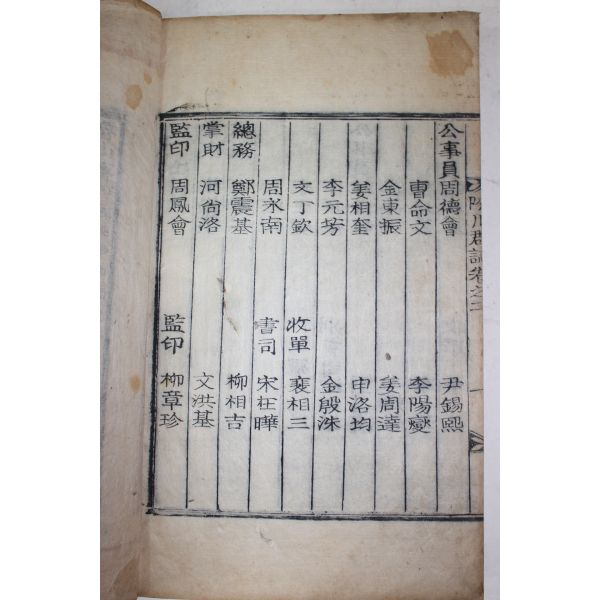 陜川郡誌卷之二
公事員 周德會 尹錫熙
曺命文 李陽燮
金東振 姜周達
姜相奎 申洛均
李元芳 金殷洙
文丁欽 收單 裵相三
周永南 書司 宋在曄
總務 鄭震基 柳相吉
掌財 河尙洛 文洪基
監印 周鳳會 監印 柳章珍